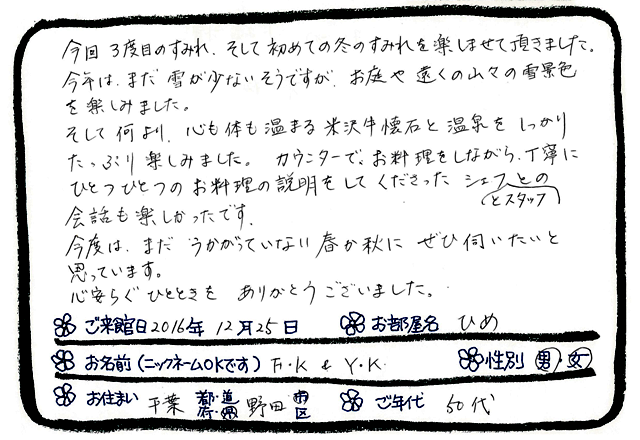 今回3度目のすみれ、そして初めての冬のすみれを楽しませて頂きました。
今年は、まだ雪が少ないそうですが、お庭や遠くの山々の雪景色
を楽しみました。
そして何より、心も体も温まる米沢牛懐石と温泉をしっかり
たっぷり楽しみました。カウンターで、お料理をしながら、丁寧に
ひとつひとつのお料理の説明をしてくださったシェフとの
とスタッフ
会話も楽しかったです。
今度は、まだうかがっていない春か秋にぜひ伺いたいと
思っています。
心安らぐひとときをありがとうございました。
ご来館日 2016年 12月25日 お部屋名 ひめ
お名前(ニックネームOKです) F・K & Y・K 性別 男・女
お住まい 千葉 都・道・府・県 野田 市・区 ご年代 50代